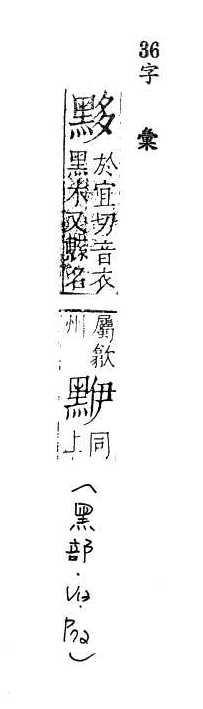 36字彙
黟
於宜切音衣
黑木又縣名
屬歙
州
同
上
(黑部